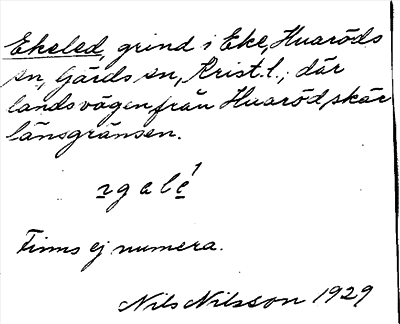 Ekeled, grind i Eke, Huaröds
sn, Gärds sn, Krist. l.; där
landsvägen från Huaröd skär
länsgränsen.
Finns ej numera.
Nils Nilsson 1929